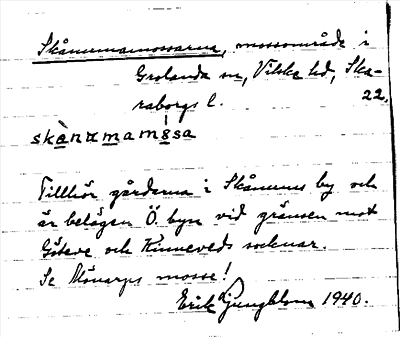 Skånumamossarna, mossområde i
Grolanda sn, Vilske hd, Ska-
raborgs l. 22.
skànʊmamòsa
Tillhör gårdarna i Skånums by och
är belägen Ö. byn vid gränsen mot
Göteve och Kinneveds socknar.
Se Mönarps mosse!
Erik Ljungblom 1940.